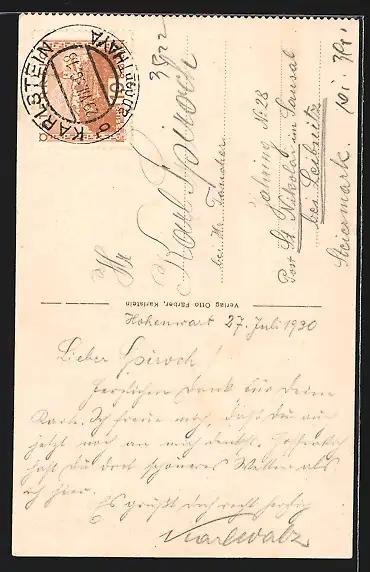 KARLSTEIN
Hr
Karl Spiroch
bei Hr. Tamcher
Jahring № 28
Post St Nikolai im Sausal
bei Leibnitz
Steiermark.
Verlag Otto Färber, Karlstein
Hohenwart 27. Juli 1930
Lieber Spiroch!
Herzlichen Dank für Deine
Karte. Ich freue mich, daß du auch
jetzt noch an mich denkst. Hoffentlich
hast du dort schöneres Wetter als
ich hier.
Es grüßt dich recht herzlich
Karl Walz